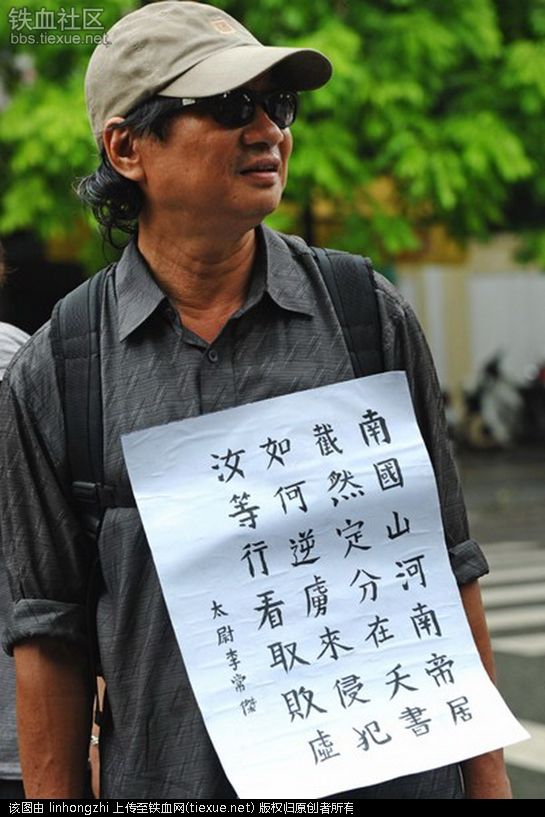 铁血社区
bbs.tiexue.net
南國山河南帝居
截然定分在天書
如何逆虜來侵犯
汝等行看取敗虛
太尉李常傑
该图由 linhongzhi 上传至铁血网(tiexue.net) 版权归原创者所有